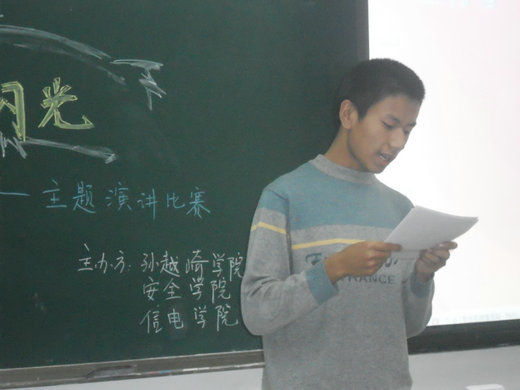 闪光
— 主题演讲比赛
主办方: 孙越崎学院
安全学院
信电学院
TRANCE